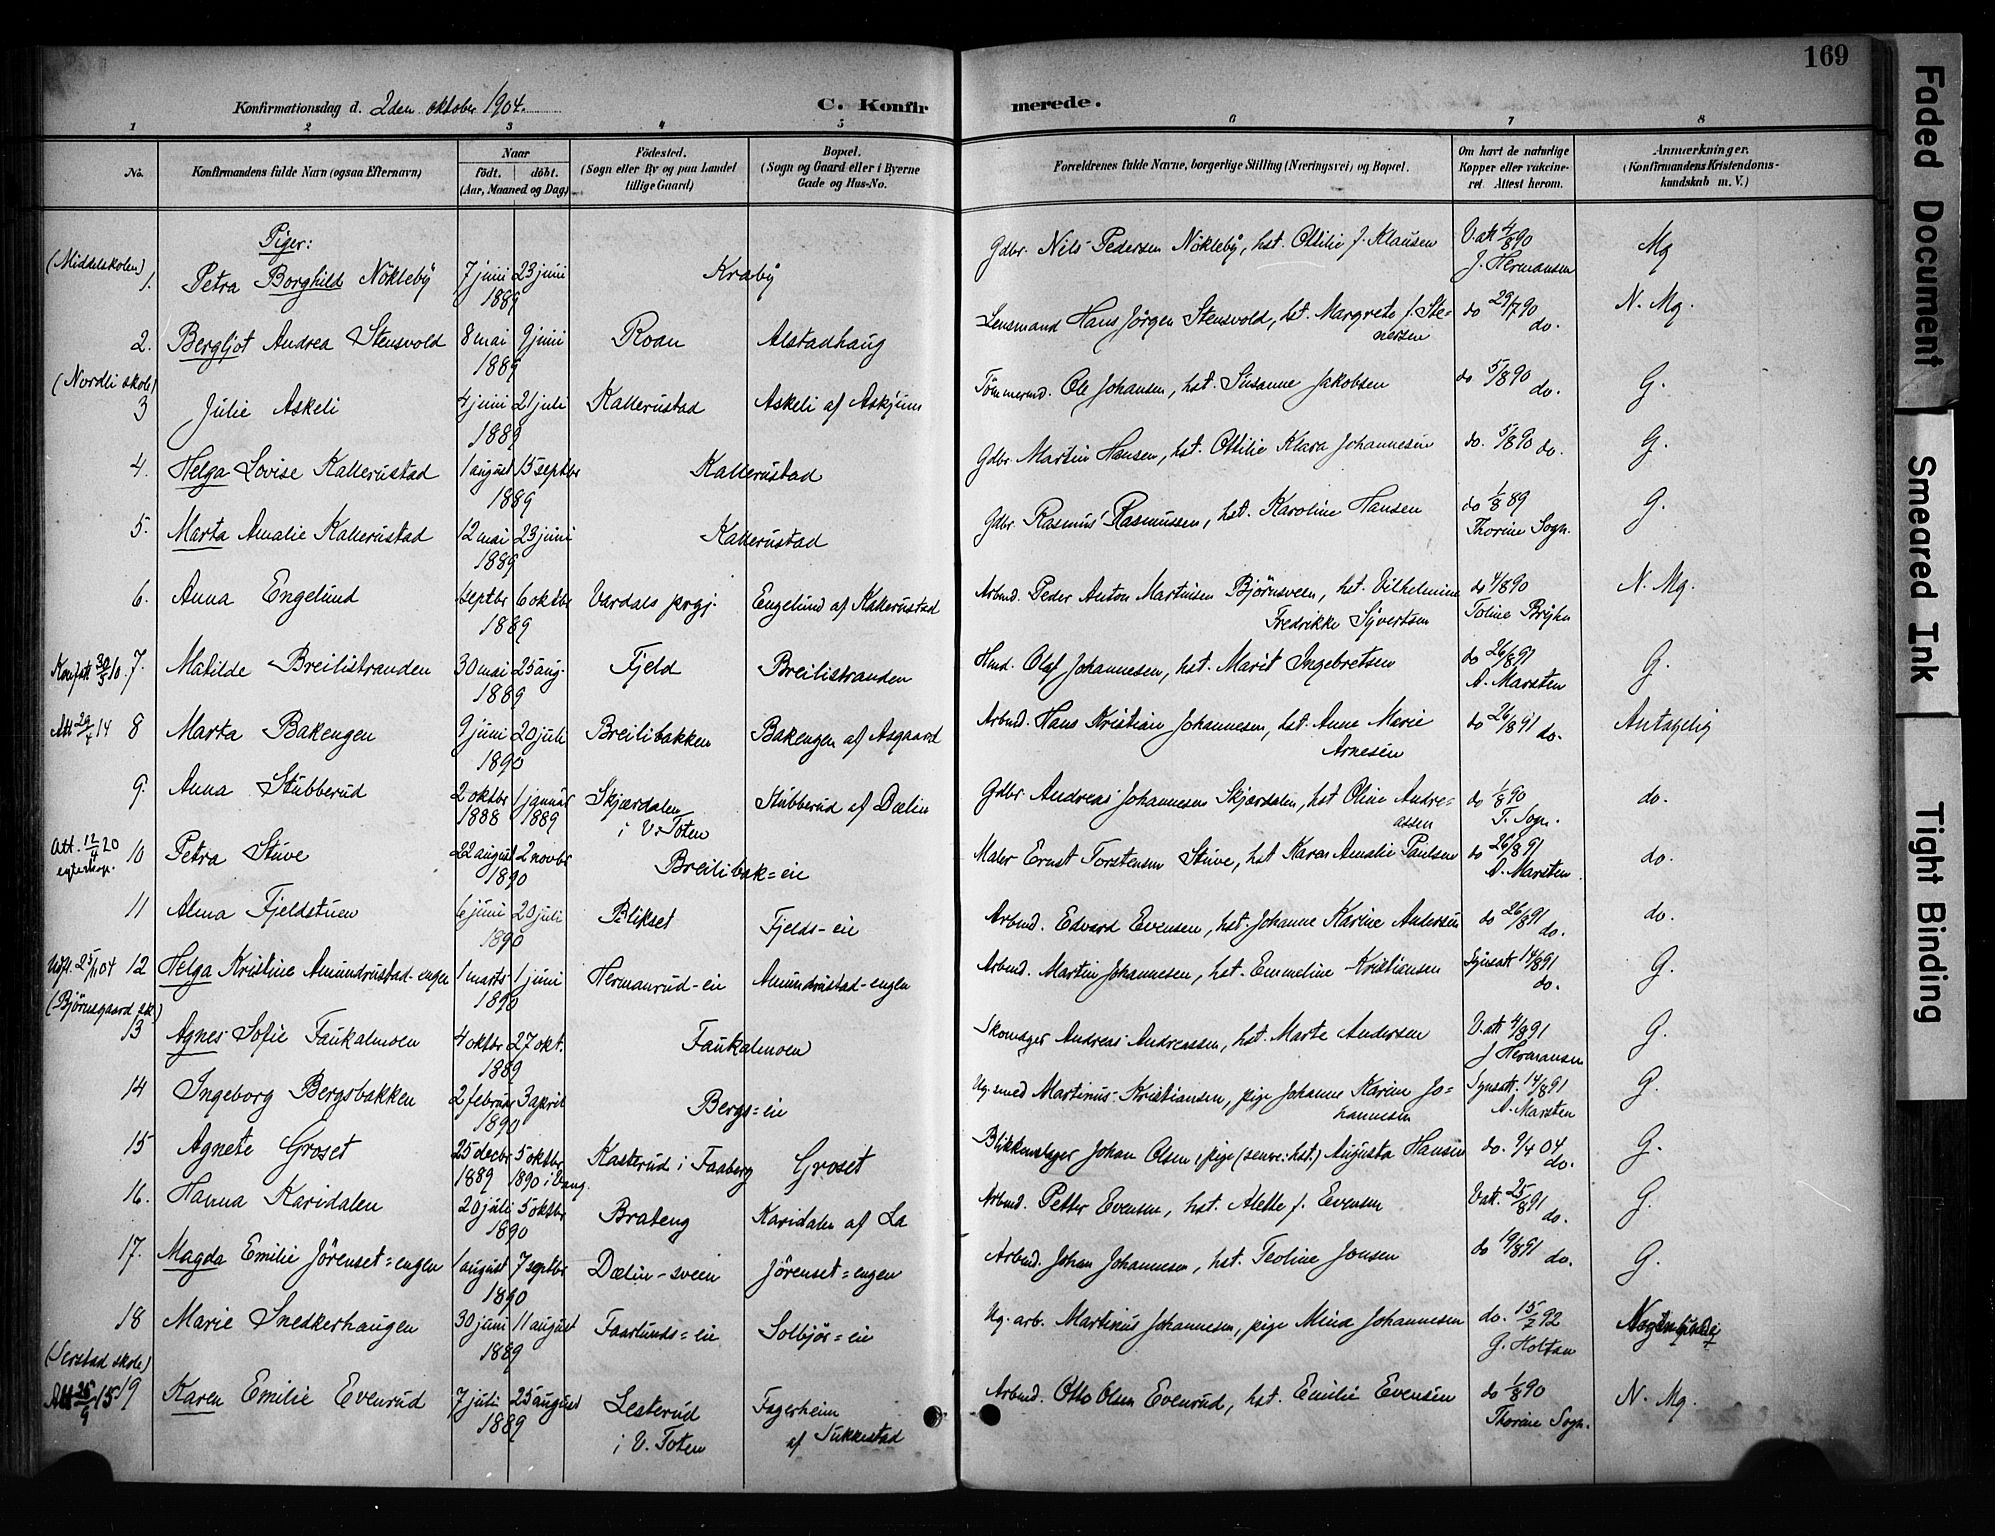 169
Konfirmationsdag d. 2den oktober 1904.
C. Konfirmerede.
1 2 3 4 5 6 7 8
No.
Konfirmandens fulde Navn (ogsaa Efternavn)
Naar
födt. döbt.
(Aar, Maaned og Dag)
Födested.
(Sogn eller By og paa Landet
tillige Gaard)
Bopæl.
(Sogn og Gaard eller i Byerne
Gade og Hus-No.
Forældrenes fulde Navne, borgerlige Stilling (Næringsvei) og Bopæl.
Om havt de naturlige
Kopper eller vakcine-
ret. Attest herom.
Anmærkninger.
(Konfirmandens Kristendoms-
kundskab m. V.)
Piger:
(Middelskolen)
1. Petra Borghild Nöklebÿ 7 juni 23 juni 1889 Krabÿ Gdbr. Nils Pedersen Nöklebÿ, hst. Ottilie f. Klausen V. att 4/8 90 J. Hermansen Mg
2. Bergljot Andrea Stensvold 8 mai 9 juni 1889 Roan Alstadhaug Lensmand Hans Jörgen Stensvold, hst. Margrete f. Stenersen do 29/7 90 do. N. Mg.
(Nordli skole)
3 Julie Askeli 4 juni 21 juli 1889 Kallerustad Askeli af Askjum Tömmermd. Ole Johansen, hst. Susanne Jakobsen do 5/8 90 do. G.
4. Helga Lovise Kallerustad 1 august 15 septbr 1889 Kallerustad Gdbr Martin Hansen, hst. Ottilie Klara Johannesen do. 5/8 90 do. G.
5. Marta Amalie Kallerustad 12 mai 23 juni 1889 Kallerustad Gdbr. Rasmus Rasmussen, hst. Karoline Hansen do 1/8 89 Thorine Sogn. G.
6. Anna Engelund septbr 6 oktbr 1889 Vardals prgj. Engelund af Kallerustad Arbmd. Peder Anton Martinsen Bjørnsveen, hst. Vilhelmine Fredrikke Sÿvertsen do 4/8 90 Toline Brÿhn N. Mg.
Konf.att 30/3 10. 7. Matilde Breilistranden 30 mai 25 aug. 1889 Fjeld Breilistranden Hmd. Olaf Johannesen, hst. Marit Ingebretsen do 26/8 91 A. Marsten G.
Att 29/4 14 8 Marta Bakengen 9 juni 20 juli 1890 Breilibakken Bakengen af Aasgaard Arbmd. Hans Kristian Johannesen, hst. Anne Marie Arnesen do 26/8 91 do. Antagelig
9. Anna Stubberud 2 oktbr 1888 1 januar 1889 Skjærdalen i V. Toten Stubberud af Dælin Gdbr. Andreas Johannesen Skjærdalen, hst Oline Andreassen do 1/8 90 T. Sogn. do.
Att. 12/4 20 10 Petra Stuve 22 august 2 novbr 1890 Breilibak=eie Maler Ernst Torstensen Stuve, hst Karen Amalie Paulsen do 26/8 91 A. Marsten do.
11 Alma Fjeldstuen 6 juni 20 juli 1890 Blikset Fjelds-eie Arbmd. Edvard Evensen, hst. Johanne Karine Andersen do 26/8 91 do. do.
Utfl. 25/11 04 12 Helga Kristine Amundrustad-engen 1 marts 1 juni 1890 Hermanrud-eie Amundrustad-engen Arbmd. Martin Johannesen, hst. Emmeline Kristiansen Synsatt 14/8 91 do. G.
(Bjørnsgaard sk.)
13 Agnes Sofie Faukalmoen 4 oktbr 27 okt. 1889 Faukalmoen Skomager Andreas Andreassen, hst. Marte Andersen V. att 4/8 91 J Hermansen G.
14 Ingeborg Bergsbakken 2 februar 3 april 1890 Bergs=eie Ug. smed Martinus Kristiansen, pige Johanne Karine Johannesen Synsatt. 14/8 91 A. Marsten G.
15 Agnete Groset 25 decbr 1889 5 oktbr 1890 i Vang. Kasterud i Faaberg Groset Blikkenslager Johan Olsen, pige (senere: hst.) Augusta Hansen do. 9/4 04 do. G.
16. Hanna Karidalen 20 juli 5 oktbr 1890 Brateng Karidalen af La Arbmd. Petter Evensen, hst. Alette f. Evensen V att. 25/8 91 do. G.
17. Magda Emilie Jörenset=engen 1 august 7 septbr 1890 Dælin-sveen Jörenset=engen Arbmd. Johan Johannesen, hst. Teoline Jonsen do 19/8 91 do. G.
18 Marie Snedkerhaugen 30 juni 11 august 1889 Faarlunds=eie Solbjør=eie Ug. arb. Martinus Johannesen, pige Mina Johannesen do. 15/2 92 G. Holtan
(Serstad skole)
Att 25/9 15 19 Karen Emilie Evenrud 7 juli 25 august 1889 Lesterud i V. Toten Fagerheim af Sukkestad Arbmd. Otto Olsen Evenrud, hst. Emilie Evensen do 1/8 90 Thorine Sogn. N. Mg.
Faded Document
Smeared Ink
Tight Binding